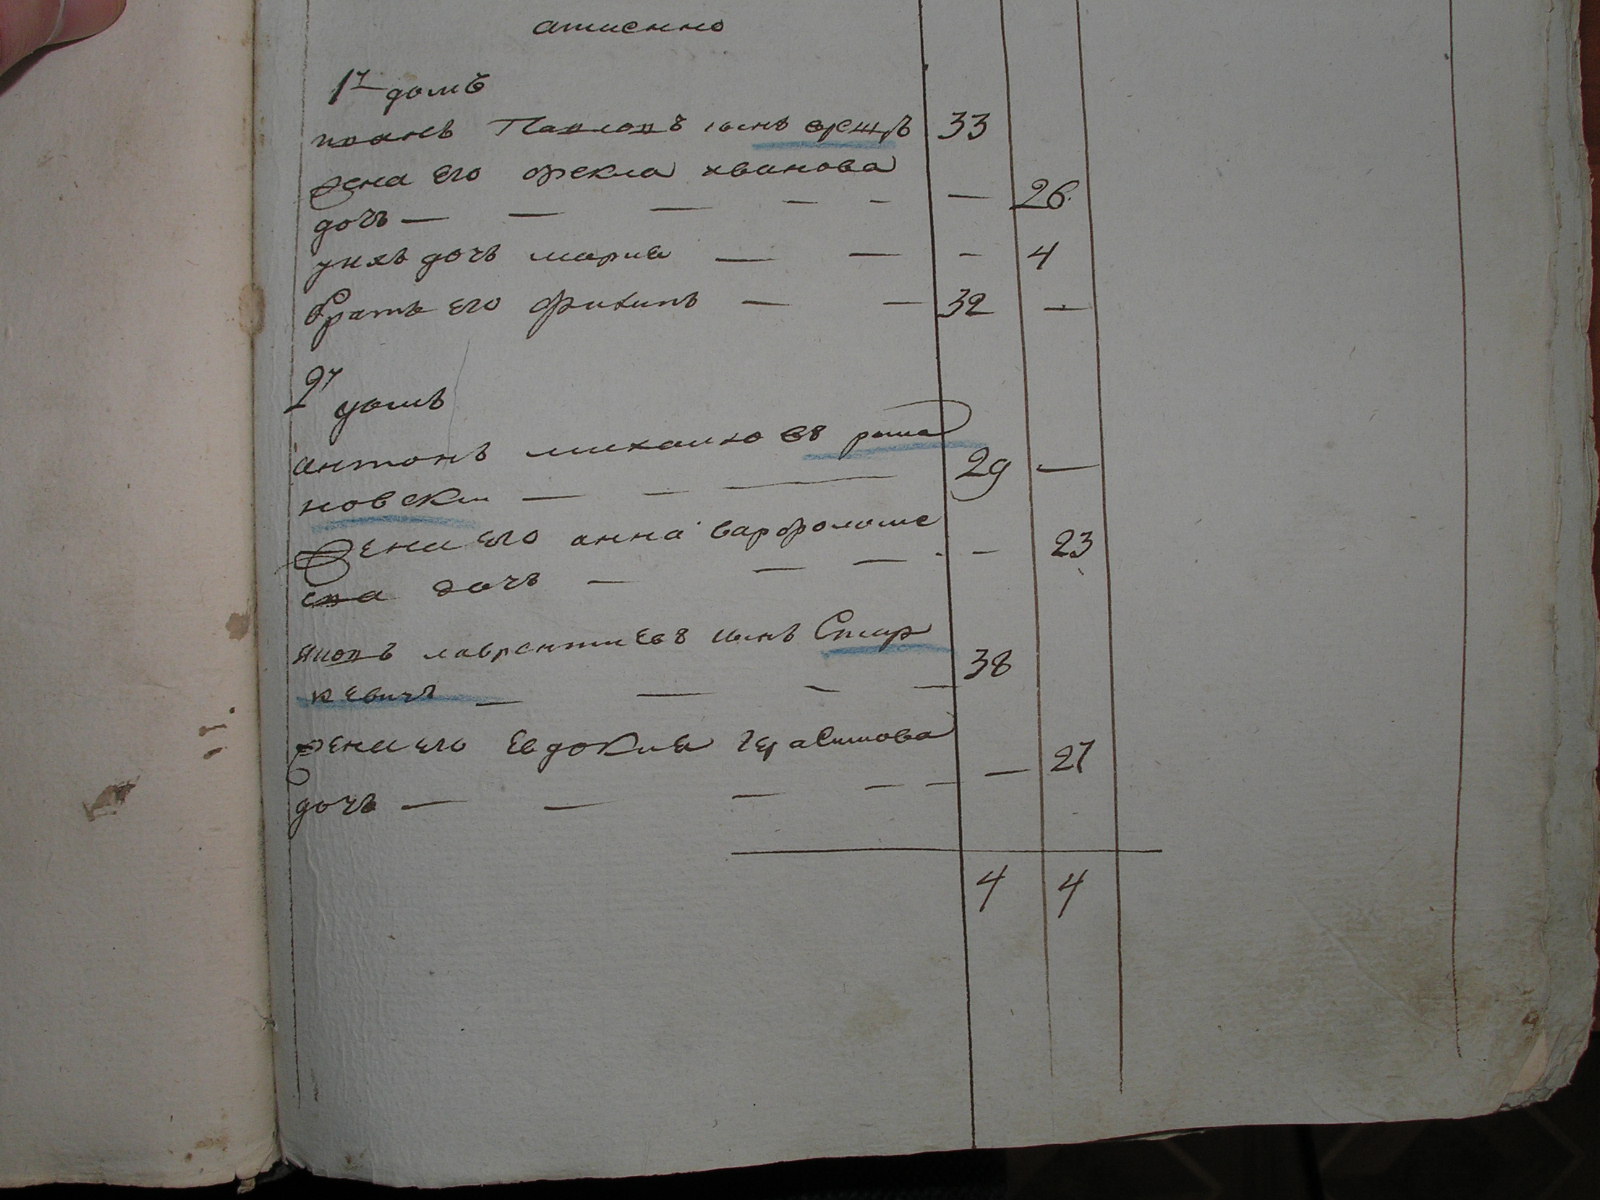 аименно
1й домъ
иванъ Павловъ сынъ 33
жена его фекла иванова
дочь — — — — - — 26
унихъ дочь мария — — - 4
братъ его филипъ — — 32 —
2й домъ
антонъ михаиловъ рома
новски — — — 29 —
жена его анна варфоломе
ева дочь — — — - — 23
яковъ лаврентиевъ сынъ Стар
кевичъ — — - — 38
жена его Евдокия герасимова
дочь — — — — - — 27
4 4